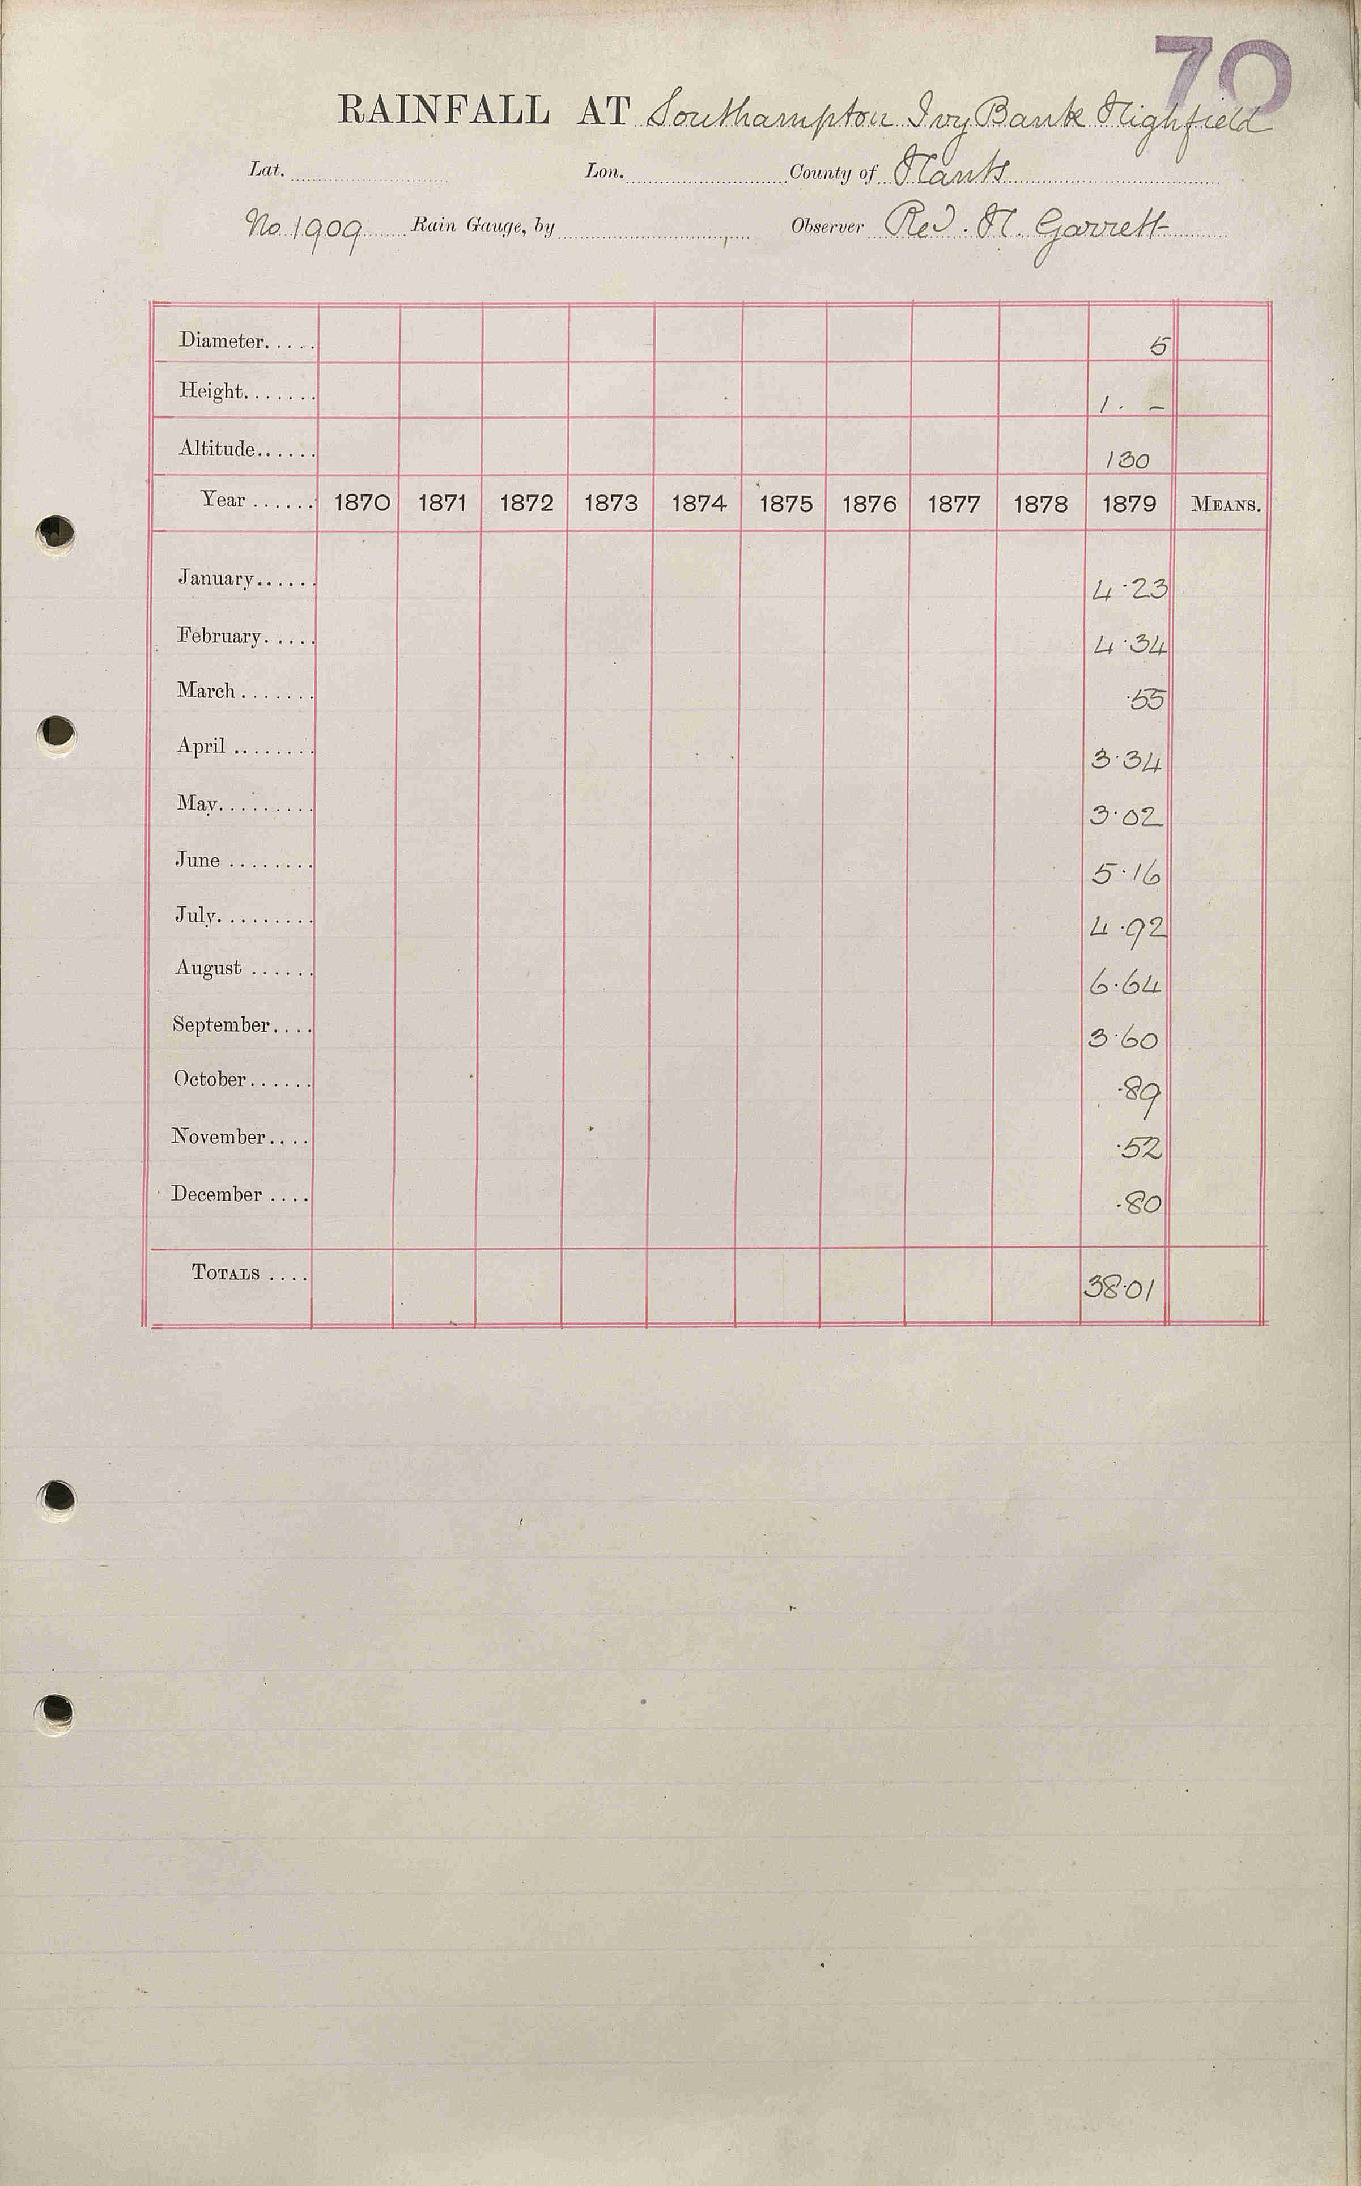 70
RAINFALL AT Southampton Ivy Bank Highfield
Lat. Lon. County of Hants
No. 1909 Rain Gauge, by Observer Rev. H. Garrett
Diameter..... 5
Height....... 1. –
Altitude...... 130
Year ...... 1870 1871 1872 1873 1874 1875 1876 1877 1878 1879 MEANS.
January...... 4.23
February..... 4.34
March....... .55
April ........ 3.34
May......... 3.02
June ........ 5.16
July......... 4.92
August ...... 6.64
September.... 3.60
October...... .89
November.... .52
December .... .80
TOTALS .... 38.01